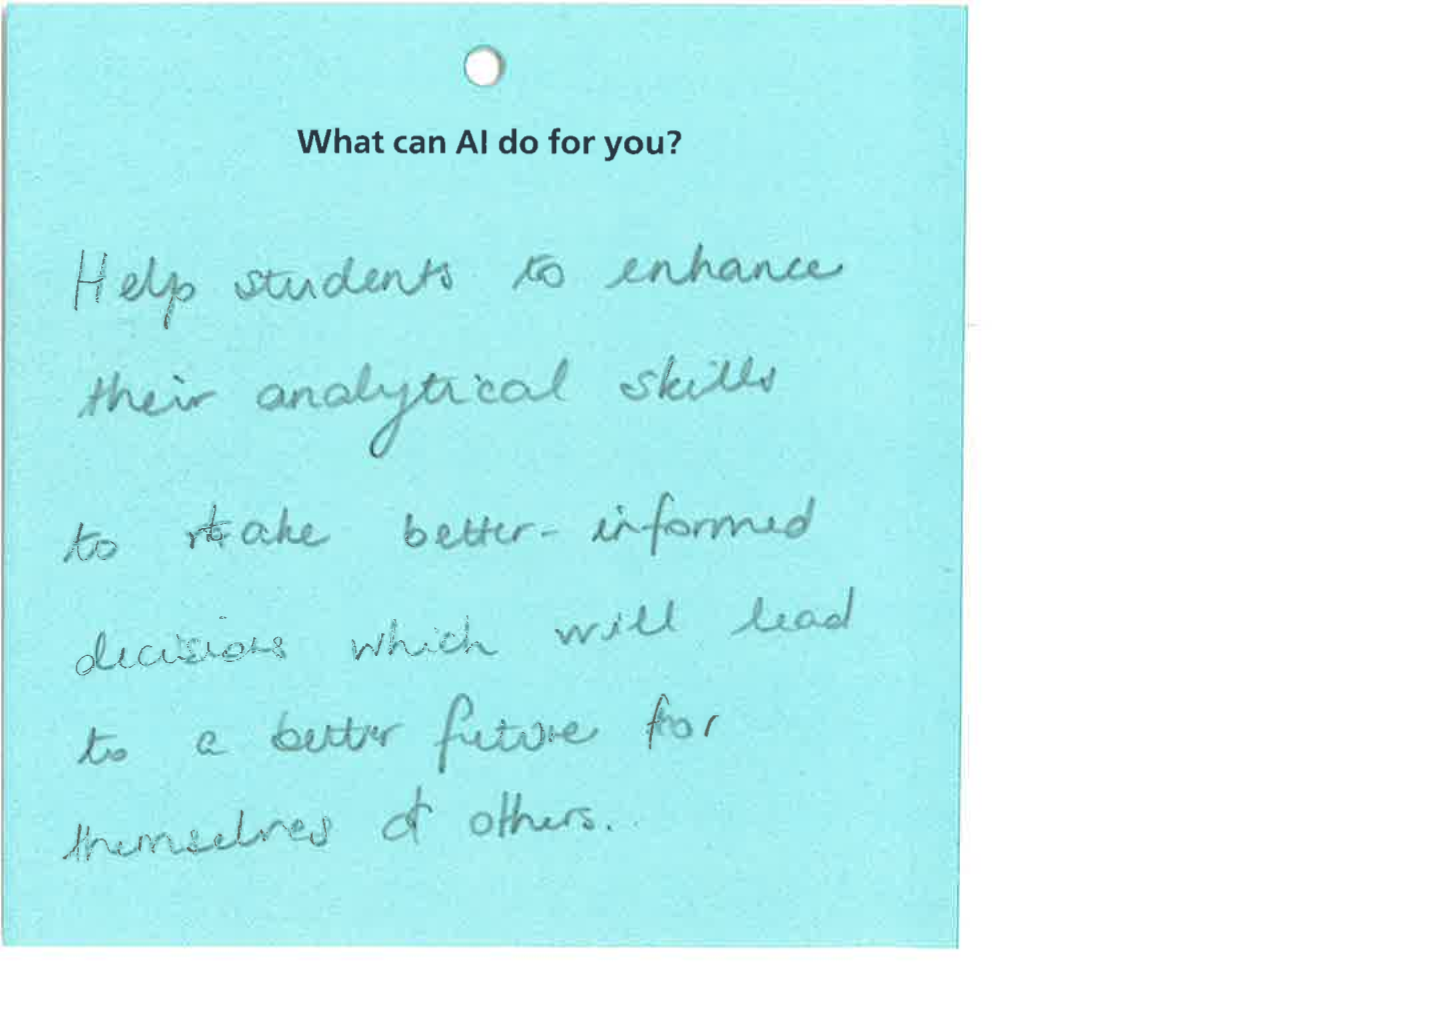 What can AI do for you?
Help students to enhance
their analytical skills
to take better-informed
decisions which will lead
to a better future for
themselves & others.